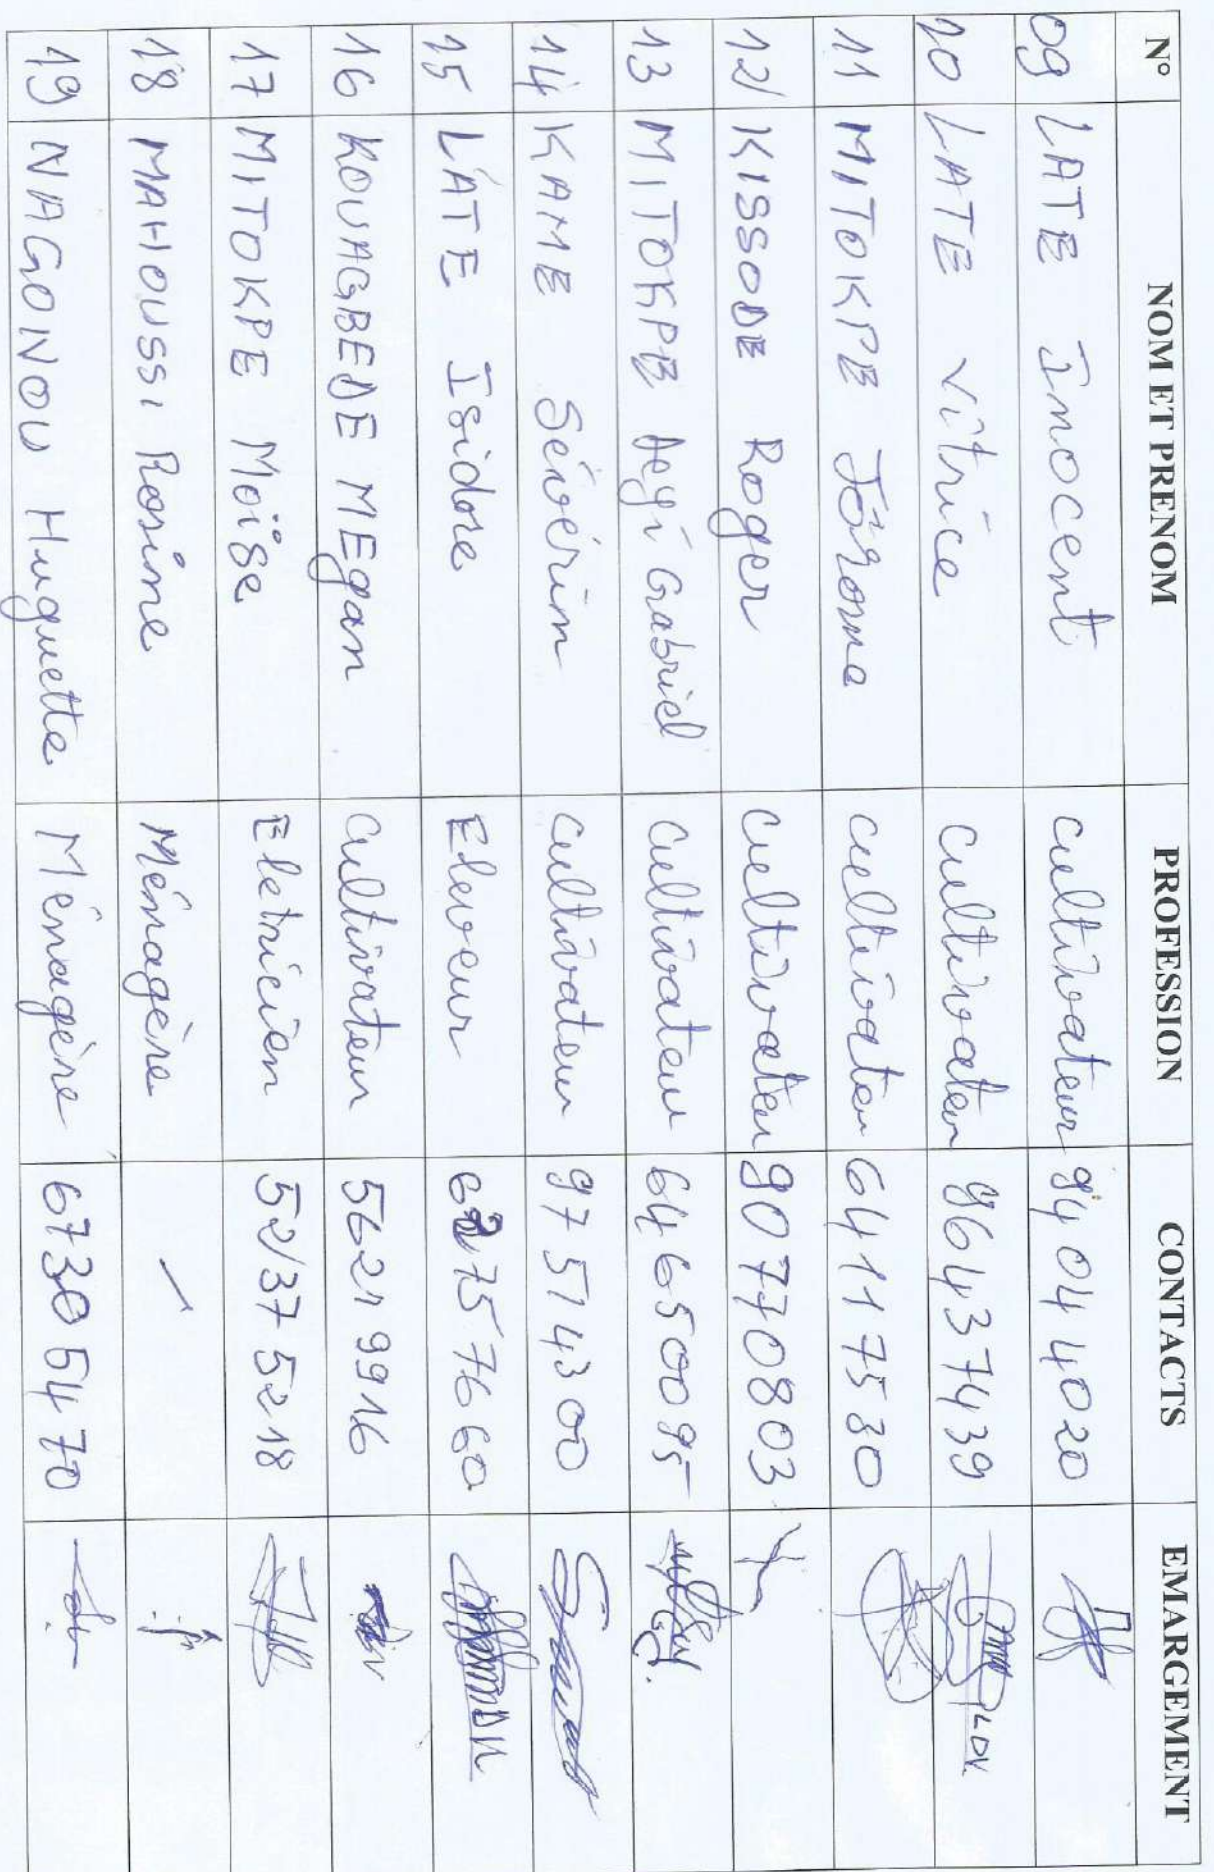 N° NOM ET PRENOM PROFESSION CONTACTS EMARGEMENT
09 LATE Inocent cultivateur 94 04 40 20
10 LATE Vitrice cultivateur 96437439
11 MITOKPE Jérome cultivateur 64117530
12 KISSODE Roger cultivateur 90770803
13 MITOKPE Gabriel cultivateur 64650095
14 KAME Séverin cultivateur 97514300
15 LATE Isidore Eleveur 62757660
16 KOUAGBEDE MEgan Cultivateur 56219916
17 MITOKPE Moïse Eletricien 52375218
18 MAHOUSSI Rosine Ménagère /
19 NAGONOU Huguette Ménagère 67305470